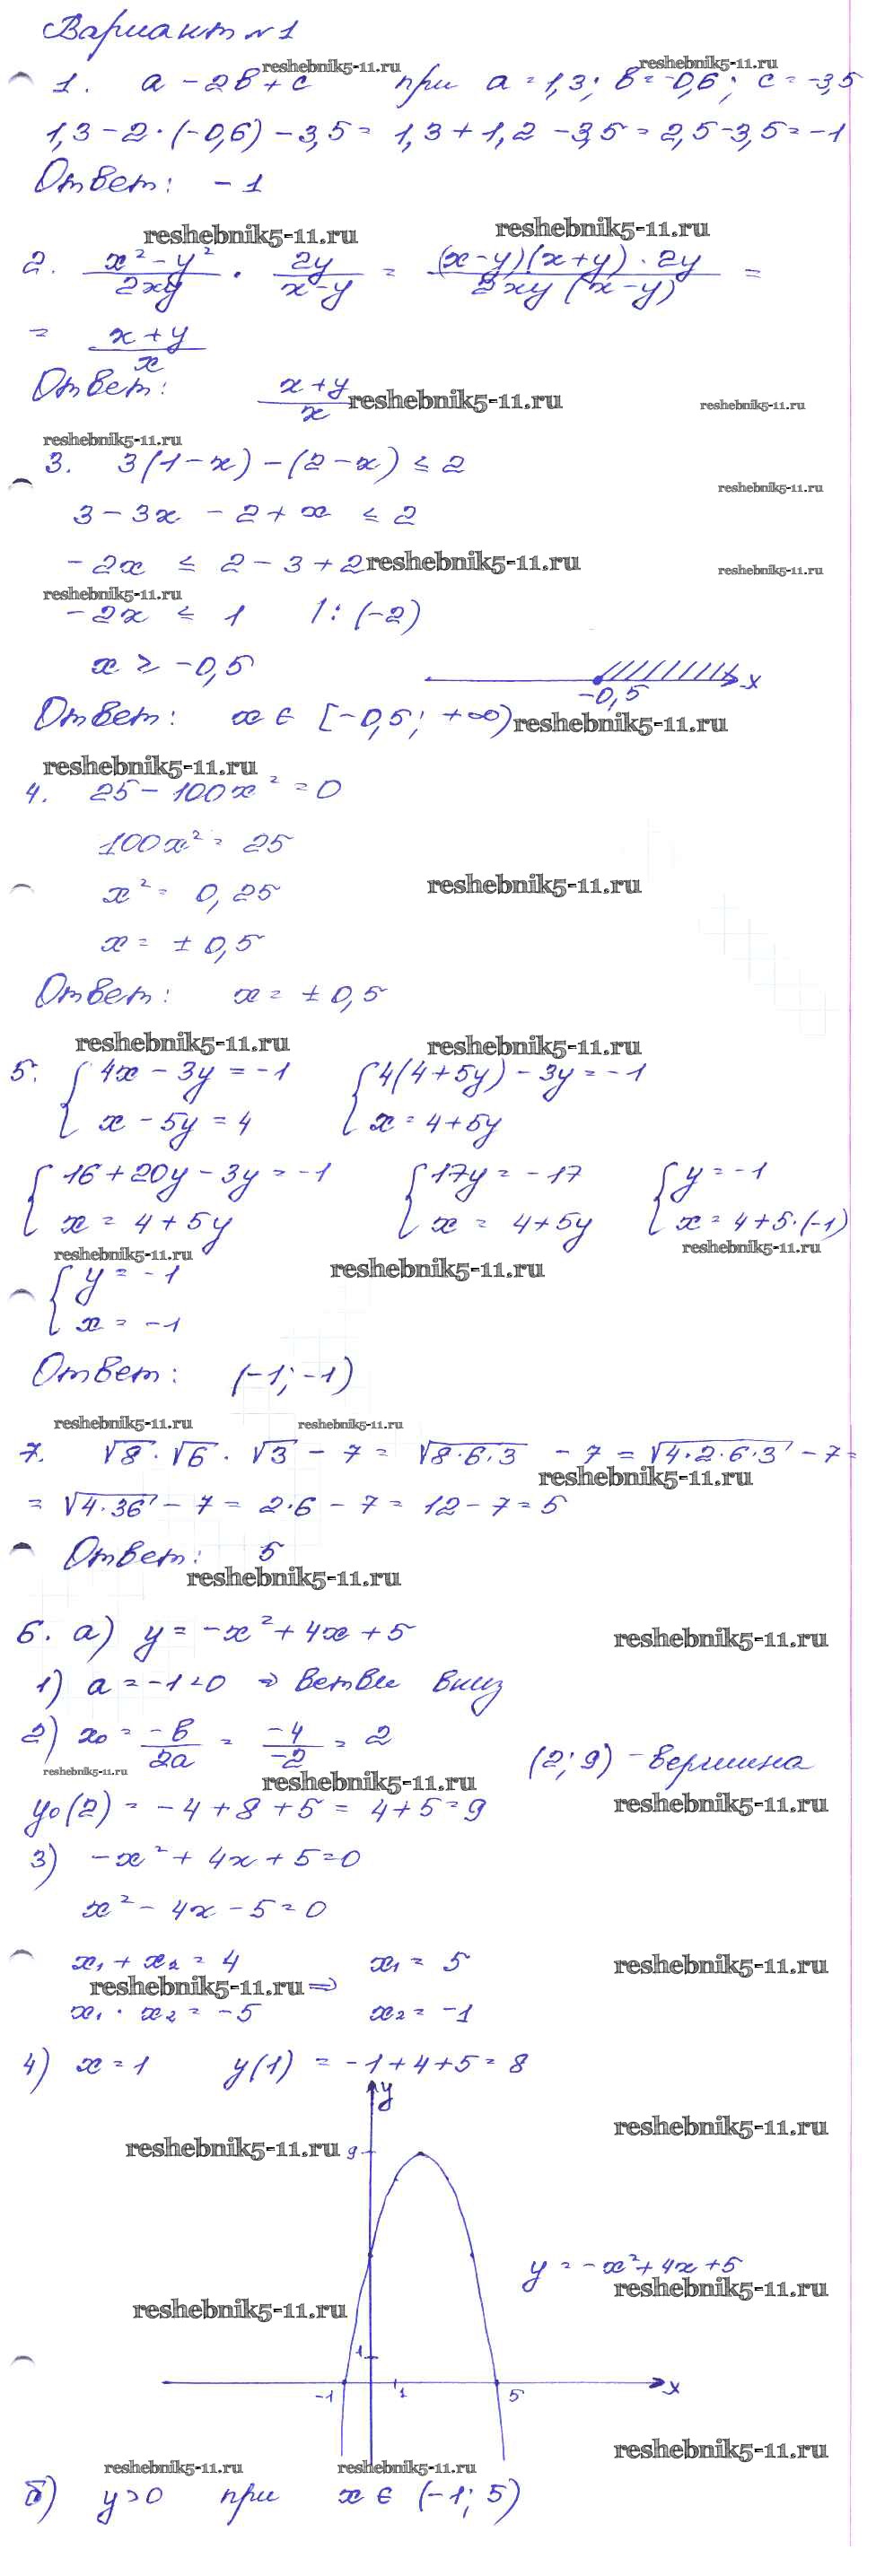 Вариант №1
reshebnik5-11.ru reshebnik5-11.ru
1. a - 2b + c при a = 1,3; b = -0,6; c = -3,5
1,3 - 2·(-0,6) - 3,5 = 1,3 + 1,2 - 3,5 = 2,5 - 3,5 = -1
Ответ: -1
reshebnik5-11.ru reshebnik5-11.ru
2. (x² - y²)/(2xy) · 2y/(x - y) = ((x-y)(x+y)·2y)/(2xy(x-y)) =
= (x+y)/x
Ответ: (x+y)/x reshebnik5-11.ru reshebnik5-11.ru
reshebnik5-11.ru
3. 3(1-x) - (2-x) ≤ 2
reshebnik5-11.ru
3 - 3x - 2 + x ≤ 2
-2x ≤ 2 - 3 + 2 reshebnik5-11.ru reshebnik5-11.ru
reshebnik5-11.ru
-2x ≤ 1 |:(-2)
x ≥ -0,5 -0,5 x
Ответ: x ∈ [-0,5; +∞) reshebnik5-11.ru
reshebnik5-11.ru
4. 25 - 100x² = 0
100x² = 25
x² = 0,25 reshebnik5-11.ru
x = ± 0,5
Ответ: x = ± 0,5
reshebnik5-11.ru reshebnik5-11.ru
5. { 4x - 3y = -1 { 4(4+5y) - 3y = -1
x - 5y = 4 x = 4+5y
{ 16 + 20y - 3y = -1 { 17y = -17 { y = -1
x = 4 + 5y x = 4+5y x = 4+5·(-1)
reshebnik5-11.ru reshebnik5-11.ru reshebnik5-11.ru
{ y = -1
x = -1
Ответ: (-1; -1)
reshebnik5-11.ru reshebnik5-11.ru
7. √8 · √6 · √3 - 7 = √8·6·3 - 7 = √4·2·6·3 - 7 =
reshebnik5-11.ru
= √4·36 - 7 = 2·6 - 7 = 12 - 7 = 5
Ответ: 5
reshebnik5-11.ru
6. а) y = -x² + 4x + 5 reshebnik5-11.ru
1) a = -1 < 0 ⇒ ветви вниз
2) x₀ = -b/2a = -4/-2 = 2 (2; 9) - вершина
reshebnik5-11.ru reshebnik5-11.ru
y₀(2) = -4 + 8 + 5 = 4 + 5 = 9 reshebnik5-11.ru
3) -x² + 4x + 5 = 0
x² - 4x - 5 = 0
x₁ + x₂ = 4 x₁ = 5 reshebnik5-11.ru
reshebnik5-11.ru ⇒
x₁ · x₂ = -5 x₂ = -1
4) x = 1 y(1) = -1 + 4 + 5 = 8
y
reshebnik5-11.ru
reshebnik5-11.ru 9
y = -x² + 4x + 5
reshebnik5-11.ru
reshebnik5-11.ru
1
-1 1 5 x
reshebnik5-11.ru
reshebnik5-11.ru reshebnik5-11.ru
б) y > 0 при x ∈ (-1; 5)